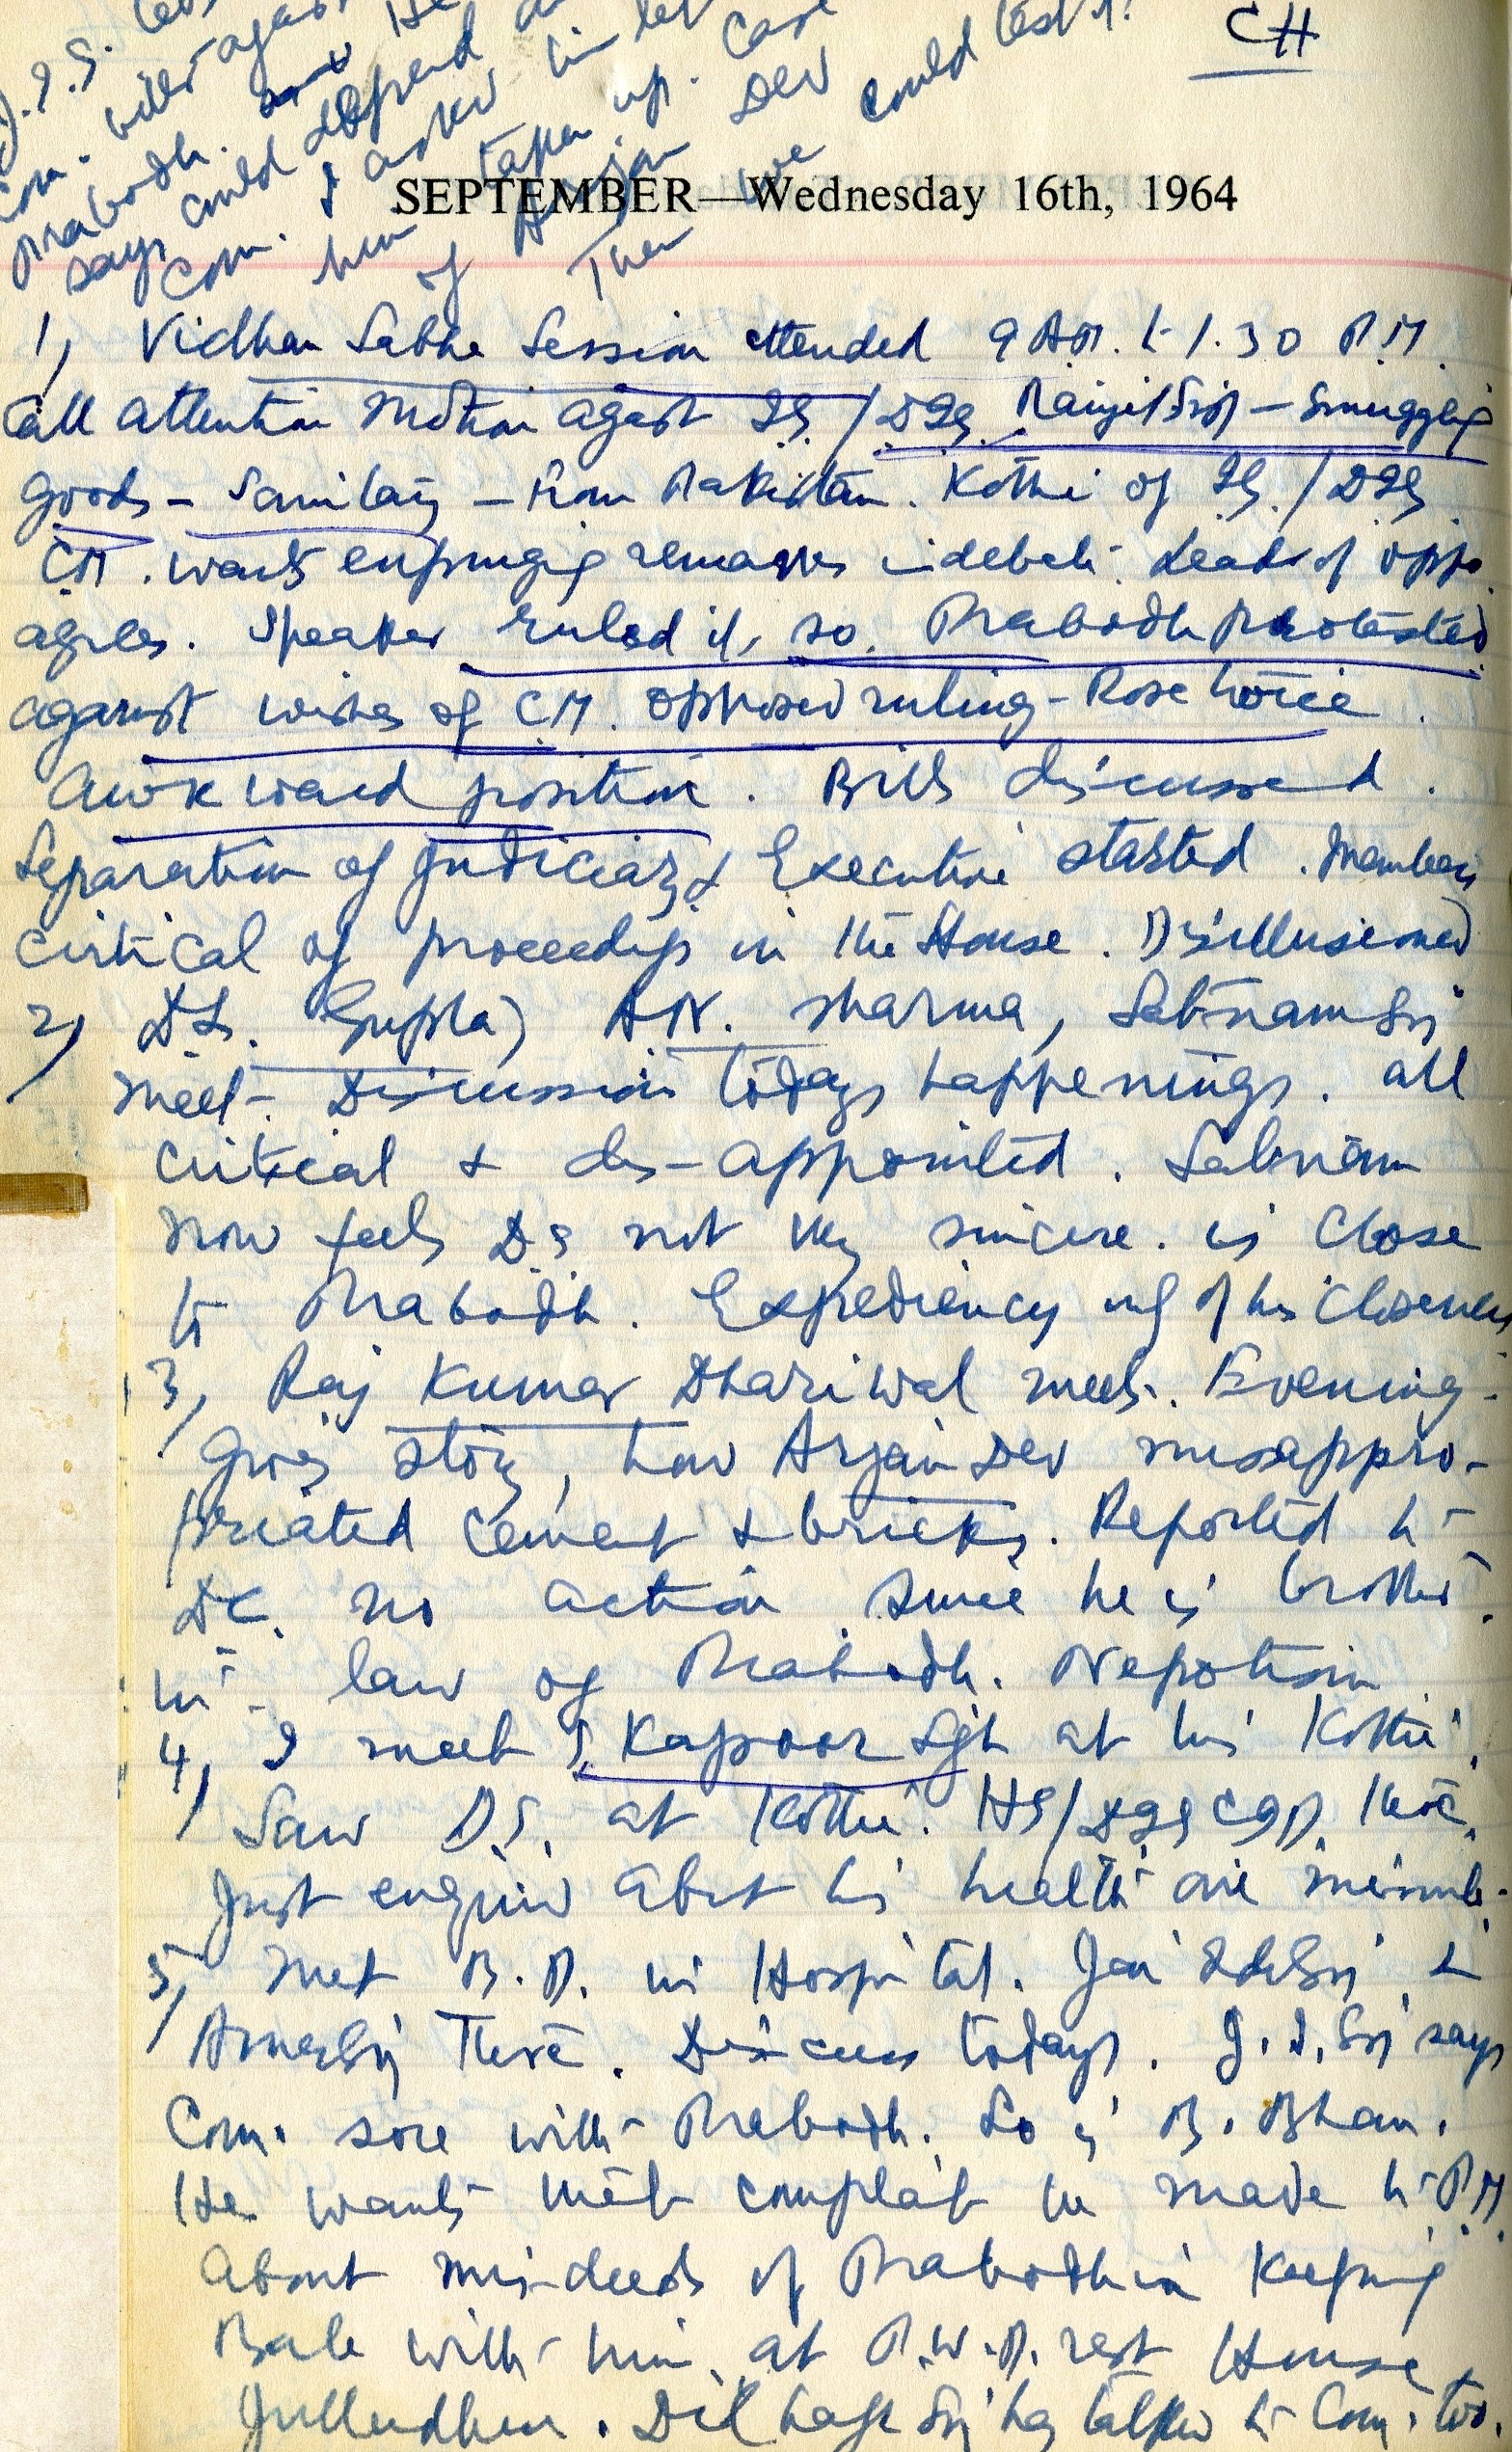 CH
J.I.S.
Com. will
Prabodh.
says could depend
Com. I asked
him taken up. Case
of Arjan Dev
Then we could test it.
SEPTEMBER—Wednesday 16th, 1964
1) Vidhan Sabha Session attended 9 AM. to 1.30 P.M.
Call attention Motion against IG./DIG. – Smuggling
goods – Sanitary – from Pakistan. Kothi of IG./DIG
CM. wants expunging remarks in debate. Leader of oppo.
agrees. Speaker ruled it, so. Prabodh protested
against wishes of C.M. opposed ruling – Rose twice.
Awkward position. Bills discussed.
Separation of Judiciary & Executive started. Members
critical of proceedings in the House. Disillusioned
2) D.D. Gupta, A.N. Sharma, Satnam Sgj
meet. Discussion todays happenings. all
critical & dis-appointed. Satnam
now feels D.S not very sincere. is close
to Prabodh. Expediency of his closeness
3) Raj Kumar Dhariwal meets. Evening.
Gives story, how Arjan Dev misappro-
priated cement & bricks. Reported to
DC. no action since he is brother.
in-law of Prabodh. Nepotism
4) I meet S. Kapoor Sgh at his Kothi.
Saw D.S. at Kothi. HS/DIG CID. there.
Just enquired about his health one minute.
5) Met B.D. in Hospital. Jai Inder Sgj &
Amar Sgj there. Discuss todays. J.I. Sgj says
Com. sore with Prabodh. So is B. Bhan.
He wants that complaint be made to P.M.
about mis-deeds of Prabodh in keeping
with him at P.W.D. rest House
Jullundhur. Dilbagh Sgj has talked to Com. too.